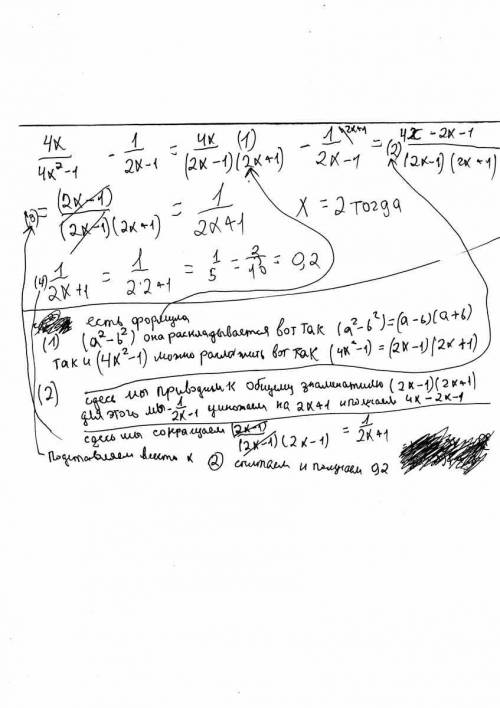 4x/(4x²-1) - 1/(2x-1) = 4x/((2x-1)(2x+1)) (1) - 1/(2x-1) \2x+1 = (2) (4x-2x-1)/((2x-1)(2x+1))
(3) = (2x-1)/((2x-1)(2x+1)) = 1/(2x+1) x = 2 тогда
(4) 1/(2x+1) = 1/(2·2+1) = 1/5 = 2/10 = 0,2
есть формула
(1) (a²-b²) она раскладывается вот так (a²-b²)=(a-b)(a+b)
так и (4x²-1) можно разложить вот так (4x²-1)=(2x-1)(2x+1)
(2) здесь мы приводим к общему знаминателю (2x-1)(2x+1)
для этого мы 1/(2x-1) умножаем на 2x+1 и получаем 4x-2x-1
здесь мы сокращаем (2x-1)/((2x-1)(2x-1)) = 1/(2x+1)
Подставляем вместо x (2) считаем и получаем 0,2